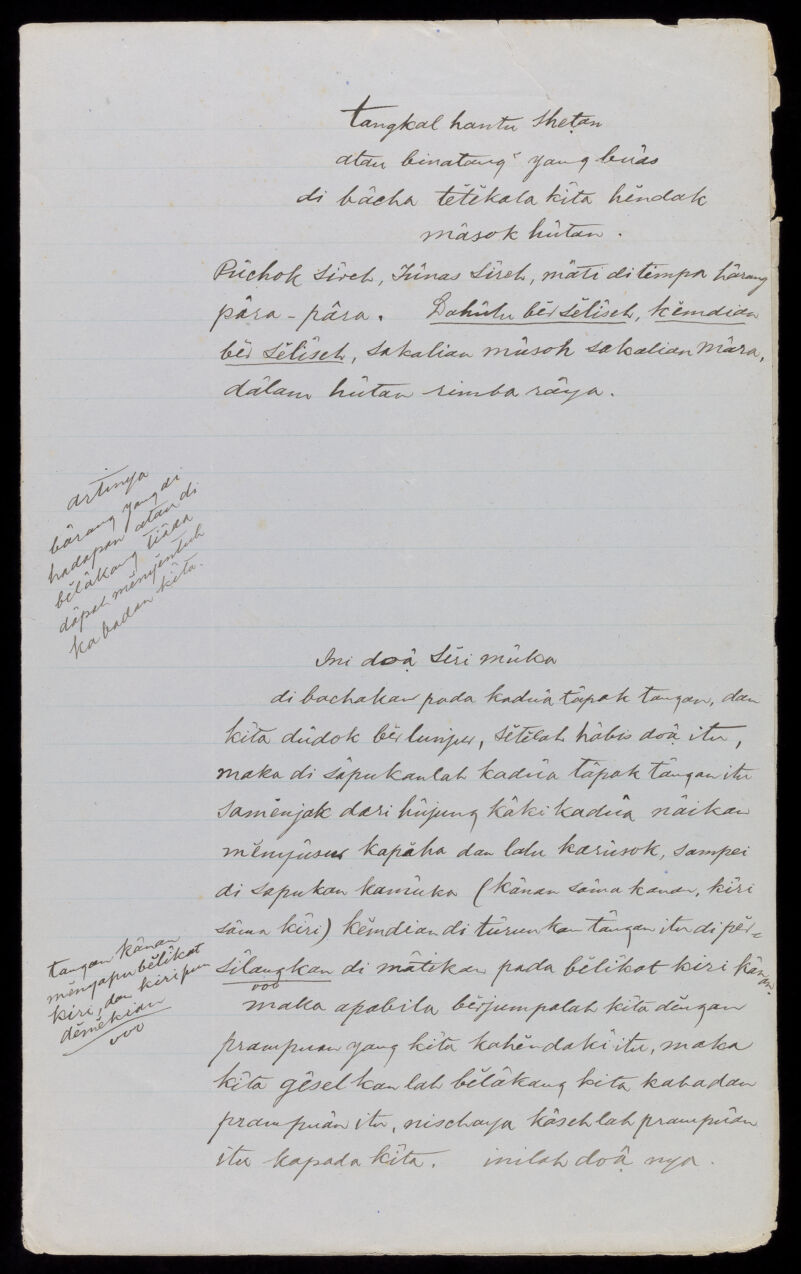 tangkal hantu Shetan
atau binatang² yang būas
di bâcha tĕtĕkala kîta hĕndak
mâsok hûtan.
Pûchok Sîreh, Tûnas Sîreh, mâti ditempa hârang
pâra-pâra. Dahûlu bĕr sĕlîseh, kĕmdian
bĕr sĕlîseh, sakalian mûsoh sakalian Mâra,
dâlam hûtan rimba râya.
artinya
bârang yang di
hadapan atau di
bĕlâkang tiâda
dâpat mĕnyentuh
ka badan kîta.
Ini doậ Sĕri mûka
di bachakan pada kadûa tâpak tangan, dan
kîta dûdok bĕrlunjur, sĕtĕlah hâbis doậ itu,
maka di sâpukanlah kadûa tâpak tângan itu
samĕnjak dari hûjung kâki kadûa nâikan
mĕnyûsur kapâha dan lalu karûsok, sampei
di sapukan kamûka (kânan sâma kanan, kiri
sâma kîri) kĕmdian di turunkan tângan itu dipĕr=
silangkan di mâtikan pada bĕlîkat kiri kânan.
ooo
tangan kânan
mĕngapu bĕlîkat
kiri, dan kiri pun
dĕmĕkian
ooo
maka apabila bĕrjumpalah kîta dĕngan
prampuan yang kîta kahĕndaki itu, maka
kîta gêselkanlah bĕlâkang kita kabadan
prampûan itu, nischaya kâsehlah prampûan
itu kapada kîta. inilah doậ nya.